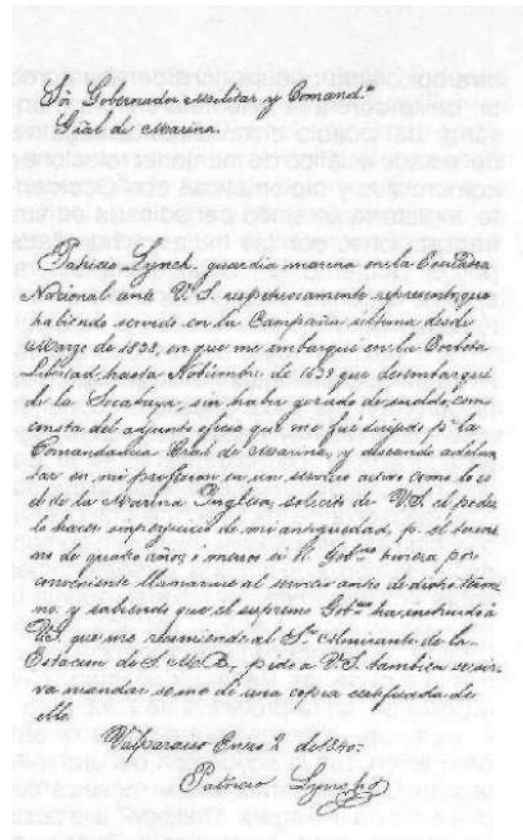 Sôr. Gobernador Militar y Comand.te
Gral de Marina.
Patricio Lynch, guardia marina en la Escuadra
Nacional ante V. S. respetuosamente represento, que
habiendo servido en la Campaña última desde
Marzo de 1838, en que me embarqué en la Corbeta
Libertad, hasta Noviembre de 1839 que desembarqué
de la Socabaya, sin haber gozado de sueldo, como
consta del adjunto oficio que me fué dirijido pr. la
Comandancia Gral de Marina, y deseando adelan
tar en mi profesion en un servicio activo como lo es
el de la Marina Inglesa, solicito de V. S. el poder
lo hacer sin perjuicio de mi antiguedad, pr. el térmi
no de quatro años, i menos si el Gob.no tuviera por
conveniente llamarme al servicio antes de dicho térmi
no. y sabiendo que el supremo Gob.no ha instruido á
V.S. que me recomiende al Sr. Almirante de la
Estacion de S. M. B., pido a V. S. tambien se sir
va mandar se me dé una copia certificada de
ello.
Valparaiso Enero 2 de 1840:
Patricio Lynch